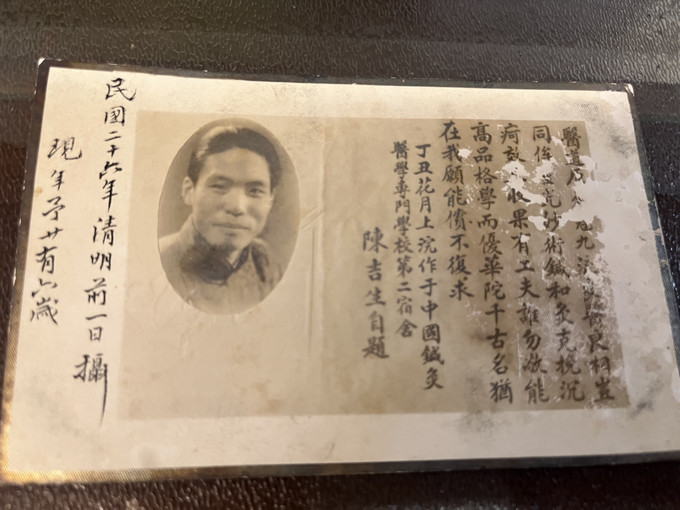 醫道九良相豈
同侔術鍼和灸克挽沉
疴效收果有工夫誰勿欲能
高品格學而優華陀千古名猶
在我願能償不復求
丁丑花月上浣作于中國鍼灸
醫學專門學校第二宿舍
陳吉生自題
民國二十六年清明前一日攝
現年予廿有六歲